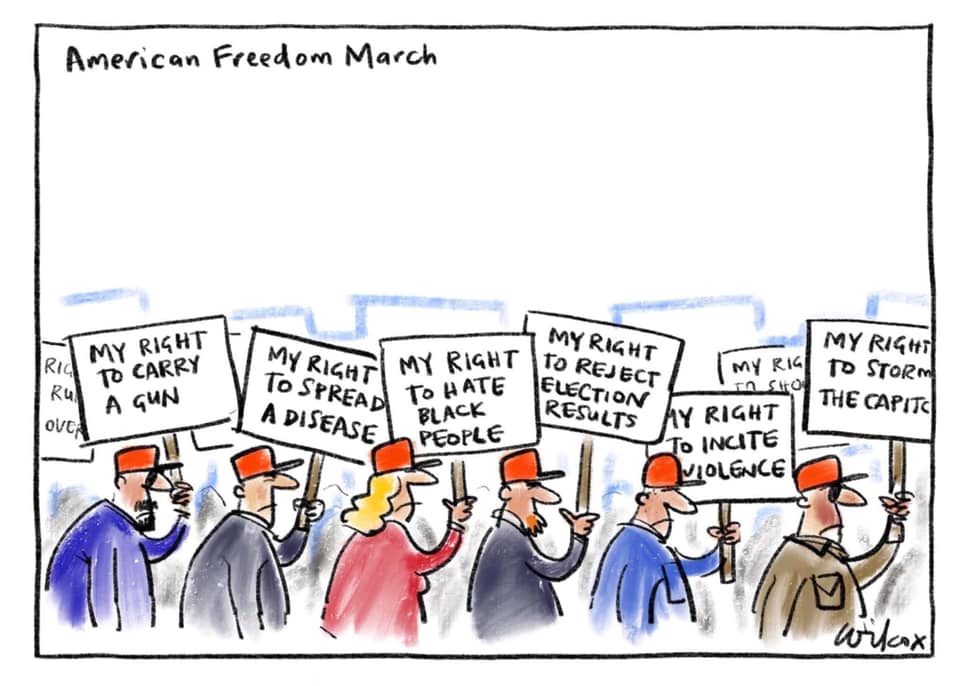 American Freedom March
RIG
RU
OVER
MY RIGHT
TO CARRY
A GUN
MY RIGHT
TO SPREAD
A DISEASE
MY RIGHT
TO HATE
BLACK
PEOPLE
MY RIGHT
TO REJECT
ELECTION
RESULTS
MY RIGHT
TO INCITE
VIOLENCE
MY RIG
TO SHO
MY RIGHT
TO STORM
THE CAPITO
wilcox